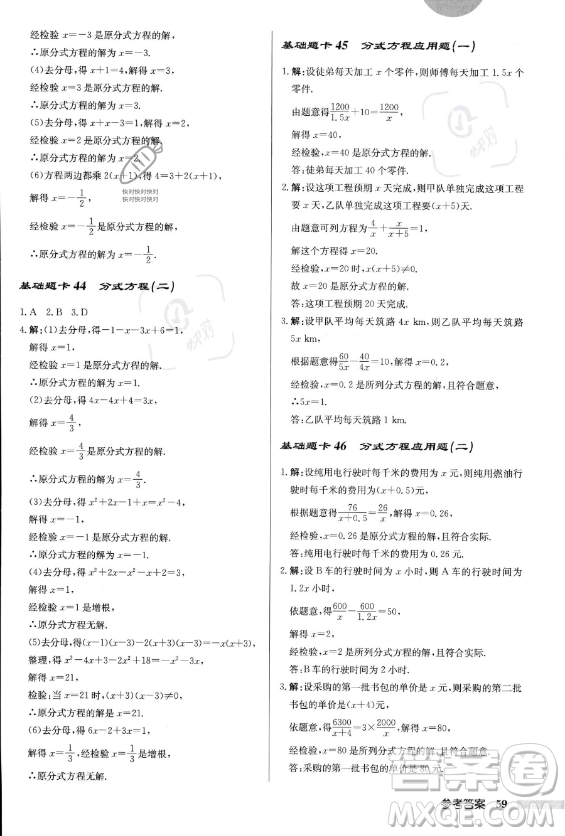 经检验x=3是原分式方程的解.
∴原分式方程的解为x=3.
(4)去分母,得x+1=4.解得x=3.
经检验x=3是原分式方程的解.
∴原分式方程的解为x=3.
(5)去分母,得2x=3x-2.解得x=2.
经检验x=2是原分式方程的解.
∴原分式方程的解为x=2.
(6)方程两边都乘2(x-1),得4=3+2(x-1).
解得x=-1/2,
经检验x=-1/2是原分式方程的解.
∴原分式方程的解为x=-1/2.
基础题卡44 分式方程(二)
1.A 2.B 3.D
4.解:(1)去分母,得-1-3x+6=1.
解得x=1,
经检验x=1是原分式方程的解.
∴原分式方程的解为x=1.
(2)去分母,得4x-4+x=x.
解得x=4/3,
经检验x=4/3是原分式方程的解.
∴原分式方程的解为x=4/3.
(3)去分母,得x²+2x-1=x²-x-4.
解得x=-1,
经检验x=-1是增根,
∴原分式方程无解.
(4)去分母,得x²+2x+1-4=x²-1.
解得x=1.
经检验x=1是增根,
∴原分式方程无解.
(5)去分母,得(x-1)(x-3)-18=x(x-3).
整理,得x²-4x+3-18=x²-3x.
解得x=21,
检验:当x=21时,
∴原分式方程的解是x=21.
(6)去分母,得6x-2+3x=1.
解得x=1/3,经检验x=1/3是增根,
∴原分式方程无解.
基础题卡45 分式方程应用题(一)
1.解:设徒弟每天加工x个零件,则师傅每天加工1.5x个
零件.
由题意得1200/1.5x+10=1200/x,
解得x=40.
经检验,x=40是原分式方程的解.
答:徒弟每天加工40个零件.
2.解:设这项工程预期x天完成,则甲队单独完成这项工程
需要x天、乙队单独完成这项工程需要(x+5)天.
由题意可列方程为4/x+x/(x+5)=1.
解这个方程得x=20.
经检验,x=20是原分式方程的解.
故x=20.
答:这项工程预期20天完成.
3.解:设甲队平均每天筑路4x km,则乙队平均每天筑路
5x km,
根据题意得60/5x-40/4x=10.
经检验,x=0.2是所列分式方程的解,且符合题意,
∴5x=1.
答:乙队平均每天筑路1 km.
基础题卡46 分式方程应用题(二)
1.解:设纯用电行驶时每千米的费用为x元,则纯用燃油行
驶时每千米的费用为(x+0.5)元,
根据题意得76/(x+0.5)=26/x,解得x=0.26,
经检验,x=0.26是原分式方程的解,且符合实际.
答:纯用电行驶时每千米的费用为0.26元.
2.解:设B车的行驶时间为x小时,则A车的行驶时间为
1.2x小时,
依题意,得600/x-600/1.2x=50,
解得x=2,
经检验,x=2是原方程的解,且符合题意.
答:B车的行驶时间为2小时.
3.解:设采购的第一批书包的单价是x元,则采购的第二批
书包的单价是(x+4)元.
依题意,得6300/(x+4)=3×2000/x,
解得x=80,
经检验,x=80是所列分式方程的解,且符合实际.
答:采购的第一批书包的单价是80元.
参考答案 59